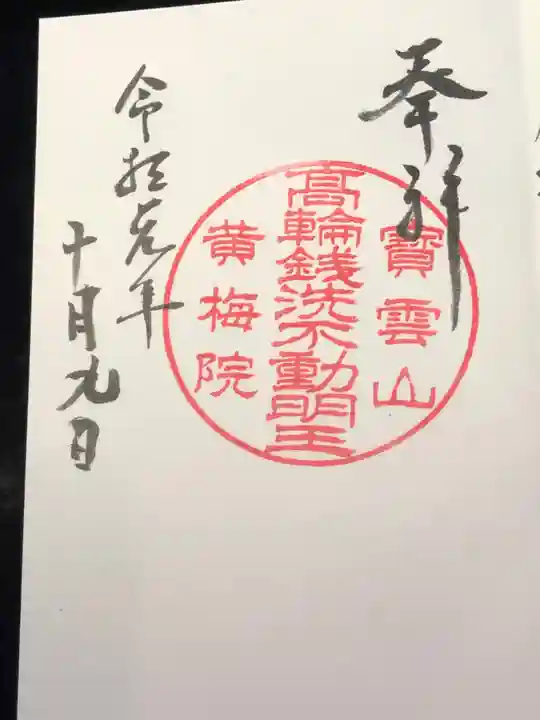 奉拝
寶雲山
高輪銭洗不動明王
黄梅院
令和元年
十月九日